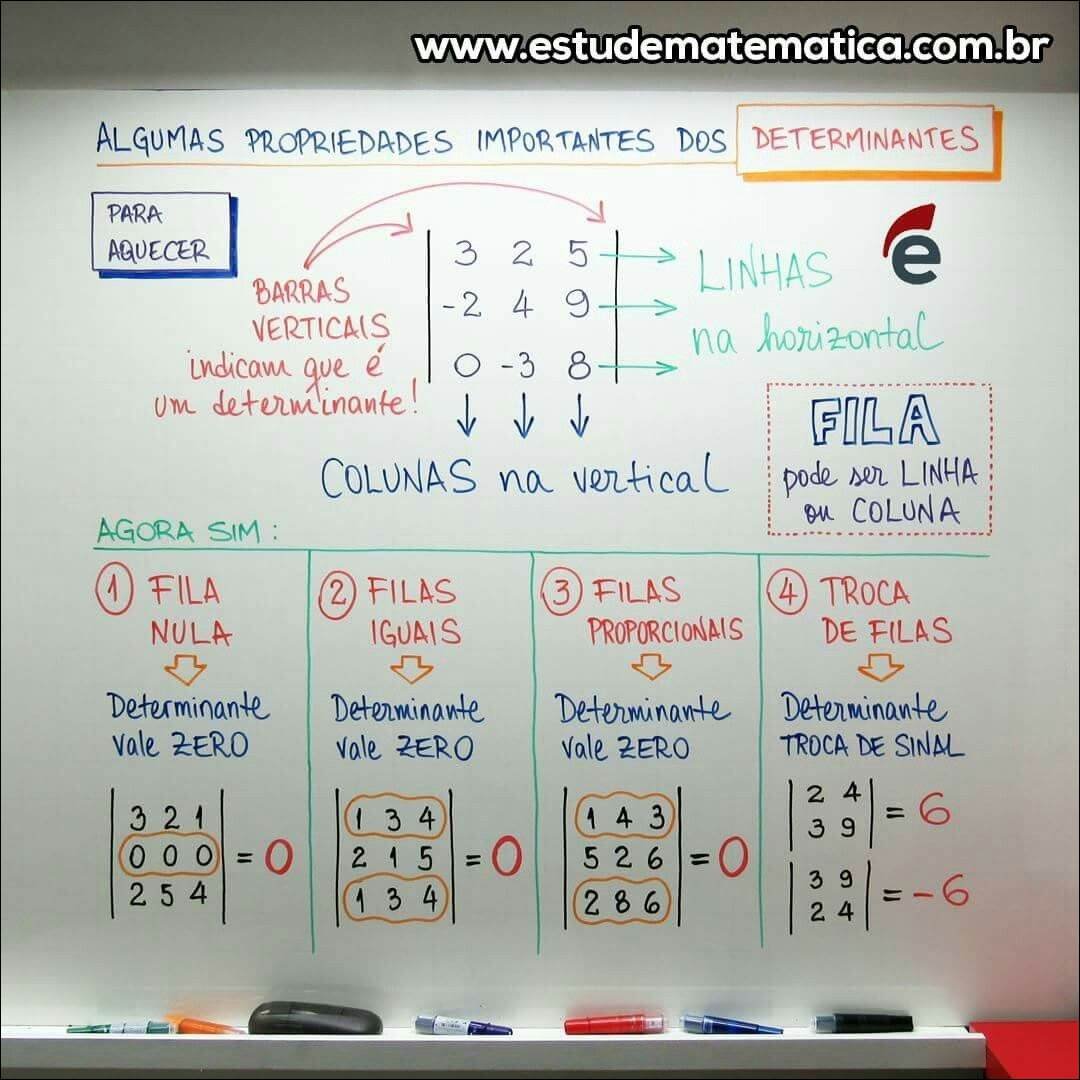 www.estudematematica.com.br
ALGUMAS PROPRIEDADES IMPORTANTES DOS DETERMINANTES
PARA
AQUECER
BARRAS
VERTICAIS
indicam que é
um determinante!
3 2 5
-2 4 9
0 -3 8
LINHAS
na horizontal
e
COLUNAS na vertical
FILA
pode ser LINHA
ou COLUNA
AGORA SIM:
1 FILA
NULA
Determinante
vale ZERO
3 2 1
0 0 0 = 0
2 5 4
2 FILAS
IGUAIS
Determinante
vale ZERO
1 3 4
2 1 5 = 0
1 3 4
3 FILAS
PROPORCIONAIS
Determinante
vale ZERO
1 4 3
5 2 6 = 0
2 8 6
4 TROCA
DE FILAS
Determinante
TROCA DE SINAL
2 4
3 9 = 6
3 9
2 4 = -6